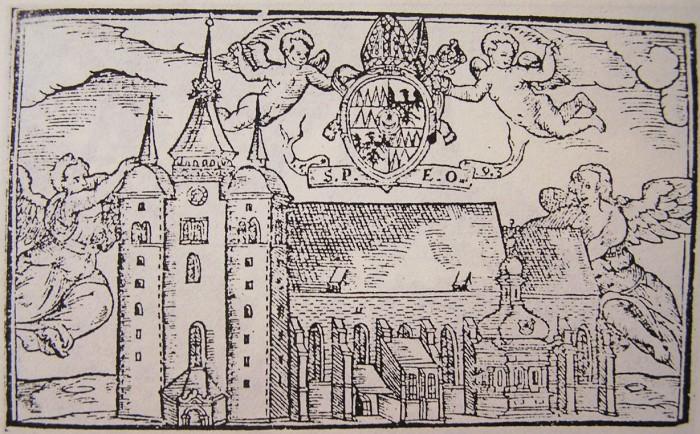 S. P. E. O. 93